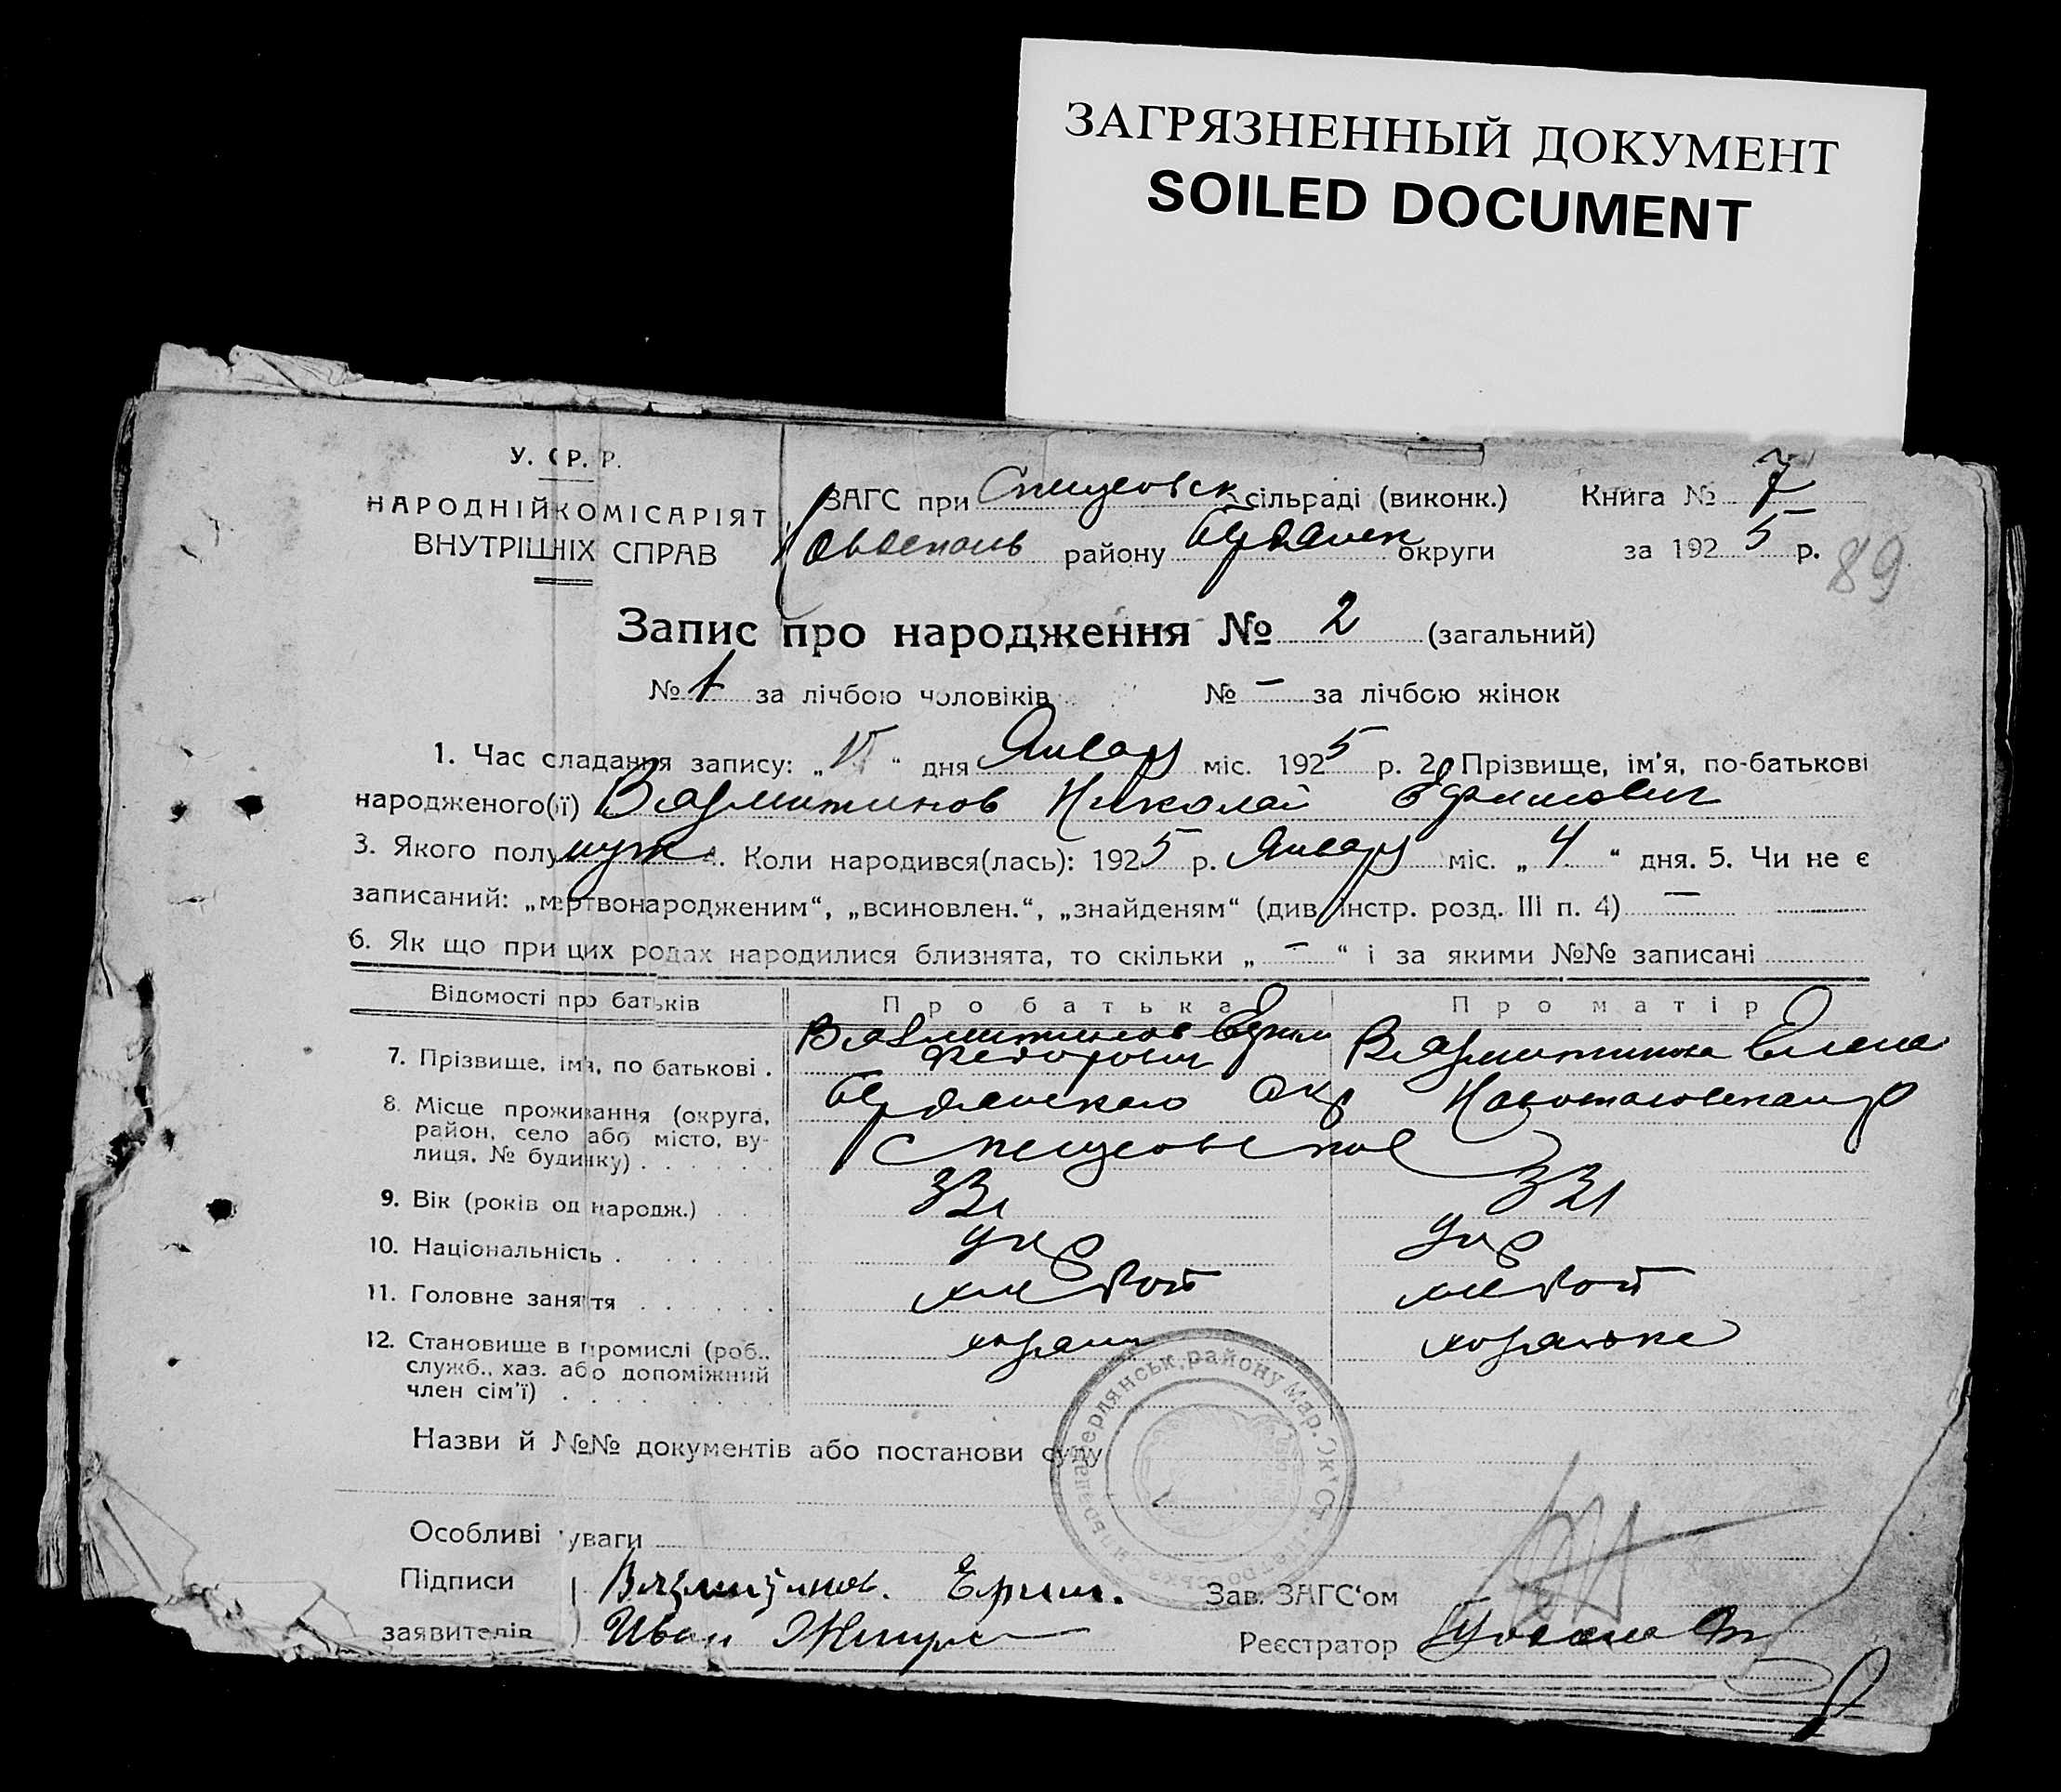 ЗАГРЯЗНЕННЫЙ ДОКУМЕНТ
SOILED DOCUMENT
У. С Р. Р.
НАРОДНІЙ КОМІСАРІЯТ
ВНУТРІШНІХ СПРАВ
ЗАГС при сільраді (виконк.) Книга № 7
району Бердянск округи за 1925 р.
89
Запис про народження № 2 (загальний)
№ 1 за лічбою чоловіків № – за лічбою жінок
1. Час складання запису: „ “ дня Январ міс. 1925 р. 2. Прізвище, ім'я, по-батькові
народженого(ї) Вязмитинов Николай Ефимович
3. Якого полу муж 4. Коли народився(лась): 1925 р. Январ міс. „4“ дня. 5. Чи не є
записаний: „мертвонародженим“, „всиновлен.“, „знайденям“ (див. інстр. розд. III п. 4) –
6. Як що при цих родах народилися близнята, то скільки „ – “ і за якими №№ записані
Відомості про батьків Про батька Про матір
7. Прізвище, ім'я, по батькові . Вязмитинов Ефим Федорович Вязмитинова Елена
8. Місце проживання (округа, район, село або місто, вулиця, № будинку) . . . . . . Бердянского Окр
9. Вік (років од народж.) . . 33 л 33 л
10. Національність . . . . . . укр укр
11. Головне заняття . . . . . . хлебоп хлебоп
12. Становище в промислі (роб., служб., хаз. або допоміжний член сім'ї) . . . . . . хозяин хозяйка
Назви й №№ документів або постанови суду
Бердянськ. району Мар. Ок.
Особливі уваги
Підписи Вязмитинов. Ефим. Зав. ЗАГС'ом
заявителів Иван Реєстратор